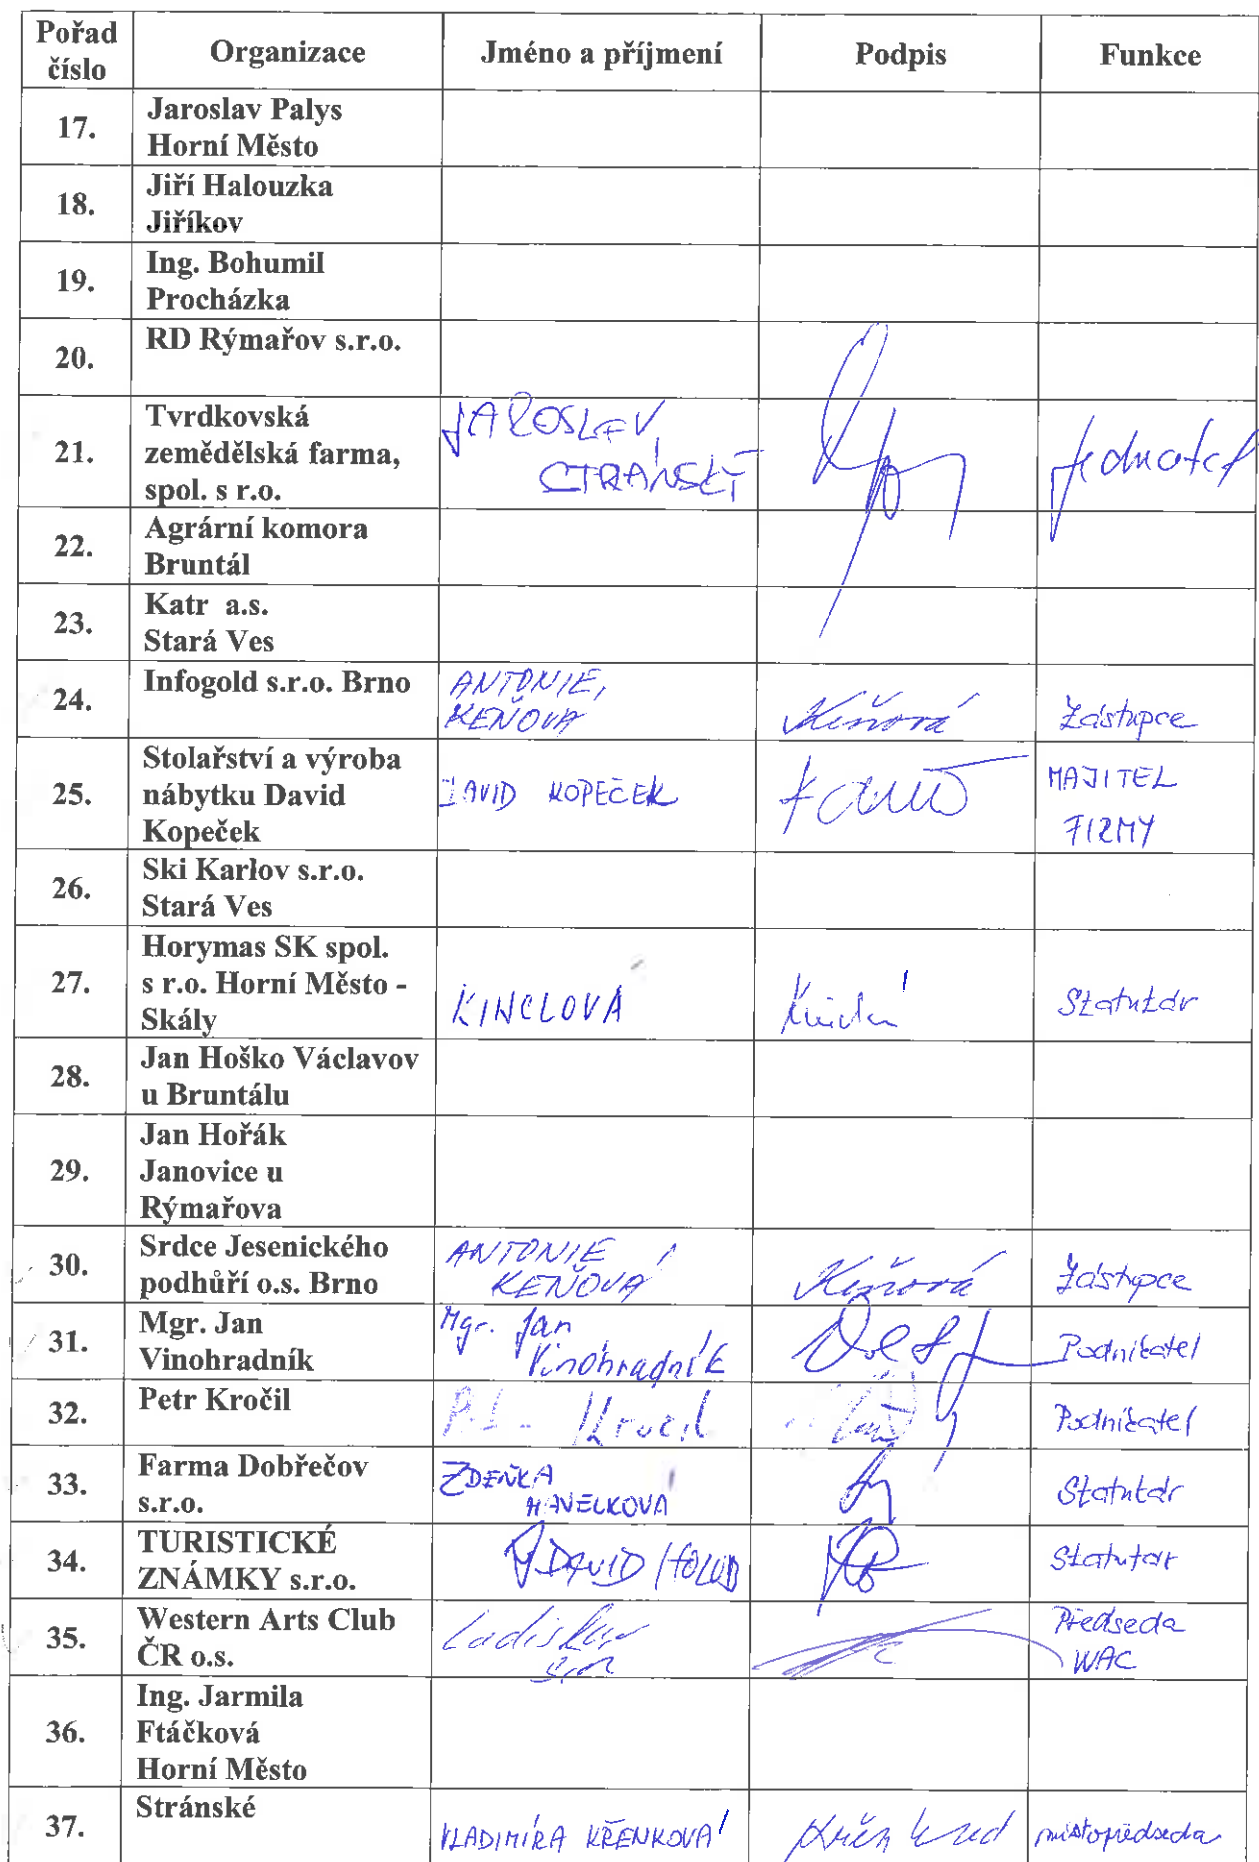 Pořad číslo Organizace Jméno a příjmení Podpis Funkce
17. Jaroslav Palys
Horní Město
18. Jiří Halouzka
Jiříkov
19. Ing. Bohumil
Procházka
20. RD Rýmařov s.r.o.
21. Tvrdkovská
zemědělská farma,
spol. s r.o.
JAROSLAV
STRÁNSKÝ
jednatel
22. Agrární komora
Bruntál
23. Katr a.s.
Stará Ves
24. Infogold s.r.o. Brno
ANTONIE,
KEŇOVA
Keňová
Zástupce
25. Stolařství a výroba
nábytku David
Kopeček
DAVID KOPEČEK
MAJITEL
FIRMY
26. Ski Karlov s.r.o.
Stará Ves
27. Horymas SK spol.
s r.o. Horní Město -
Skály
KINCLOVÁ
Statutár
28. Jan Hoško Václavov
u Bruntálu
29. Jan Hořák
Janovice u
Rýmařova
30. Srdce Jesenického
podhůří o.s. Brno
ANTONIE
KEŇOVÁ
Keňová
Zástupce
31. Mgr. Jan
Vinohradník
Mgr. Jan
Vinohradník
Podnikatel
32. Petr Kročil
Kročil
Podnikatel
33. Farma Dobřečov
s.r.o.
ZDEŇKA
HAVELKOVÁ
Statutár
34. TURISTICKÉ
ZNÁMKY s.r.o.
DAVID HOLUB
Statutár
35. Western Arts Club
ČR o.s.
Ladislav
Předseda
WAC
36. Ing. Jarmila
Ftáčková
Horní Město
37. Stránské
VLADIMÍRA KŘENKOVÁ
místopředseda